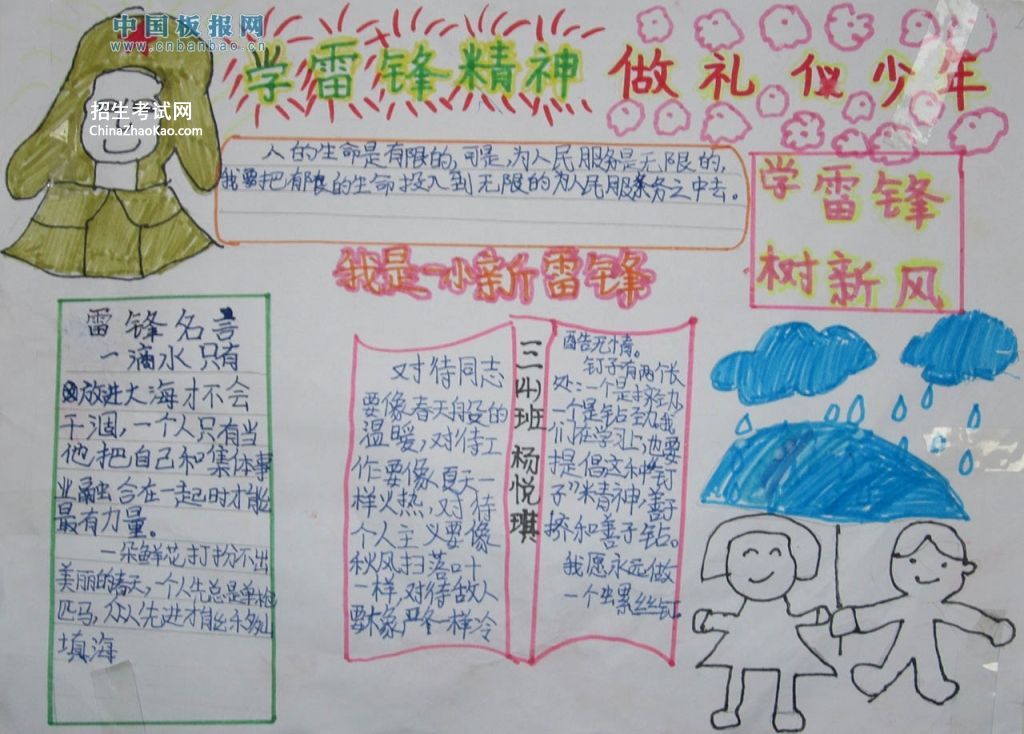 中国板报网
www.cnbanbao.cn
招生考试网
ChinaZhaoKao.com
学雷锋精神 做礼仪少年
人的生命是有限的,可是,为人民服务是无限的,
我要把有限的生命投入到无限的为人民服务之中去。
学雷锋
树新风
我是一小新雷锋
雷锋名言
一滴水只有
放进大海才不会
干涸,一个人只有当
他把自己和集体事
业融合在一起时才能
最有力量。
一朵鲜花打扮不出
美丽的春天,一个人先总是单枪
匹马,众人先进才能
填海
对待同志
要像春天般的
温暖,对待工
作要像夏天一
样火热,对待
个人主义要像
秋风扫落叶
一样,对待敌人
要像严冬一样冷
三(4)班 杨悦琪
酷无情。
钉子有两个长
处:一个是挤劲,
一个是钻劲,我
们在学习上,也要
提倡这种钉
子"精神,善于
挤和善于钻。
我愿永远做
一个螺丝钉